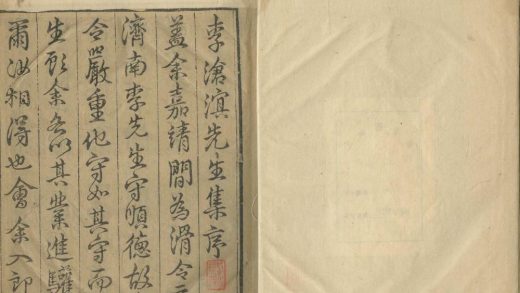 李滄溟先生集序
蓋余嘉靖間為滑令
濟南李先生守順德故
令嚴重他守如其守而
生顧余各以其業進驩
爾汝相得也會余入郎